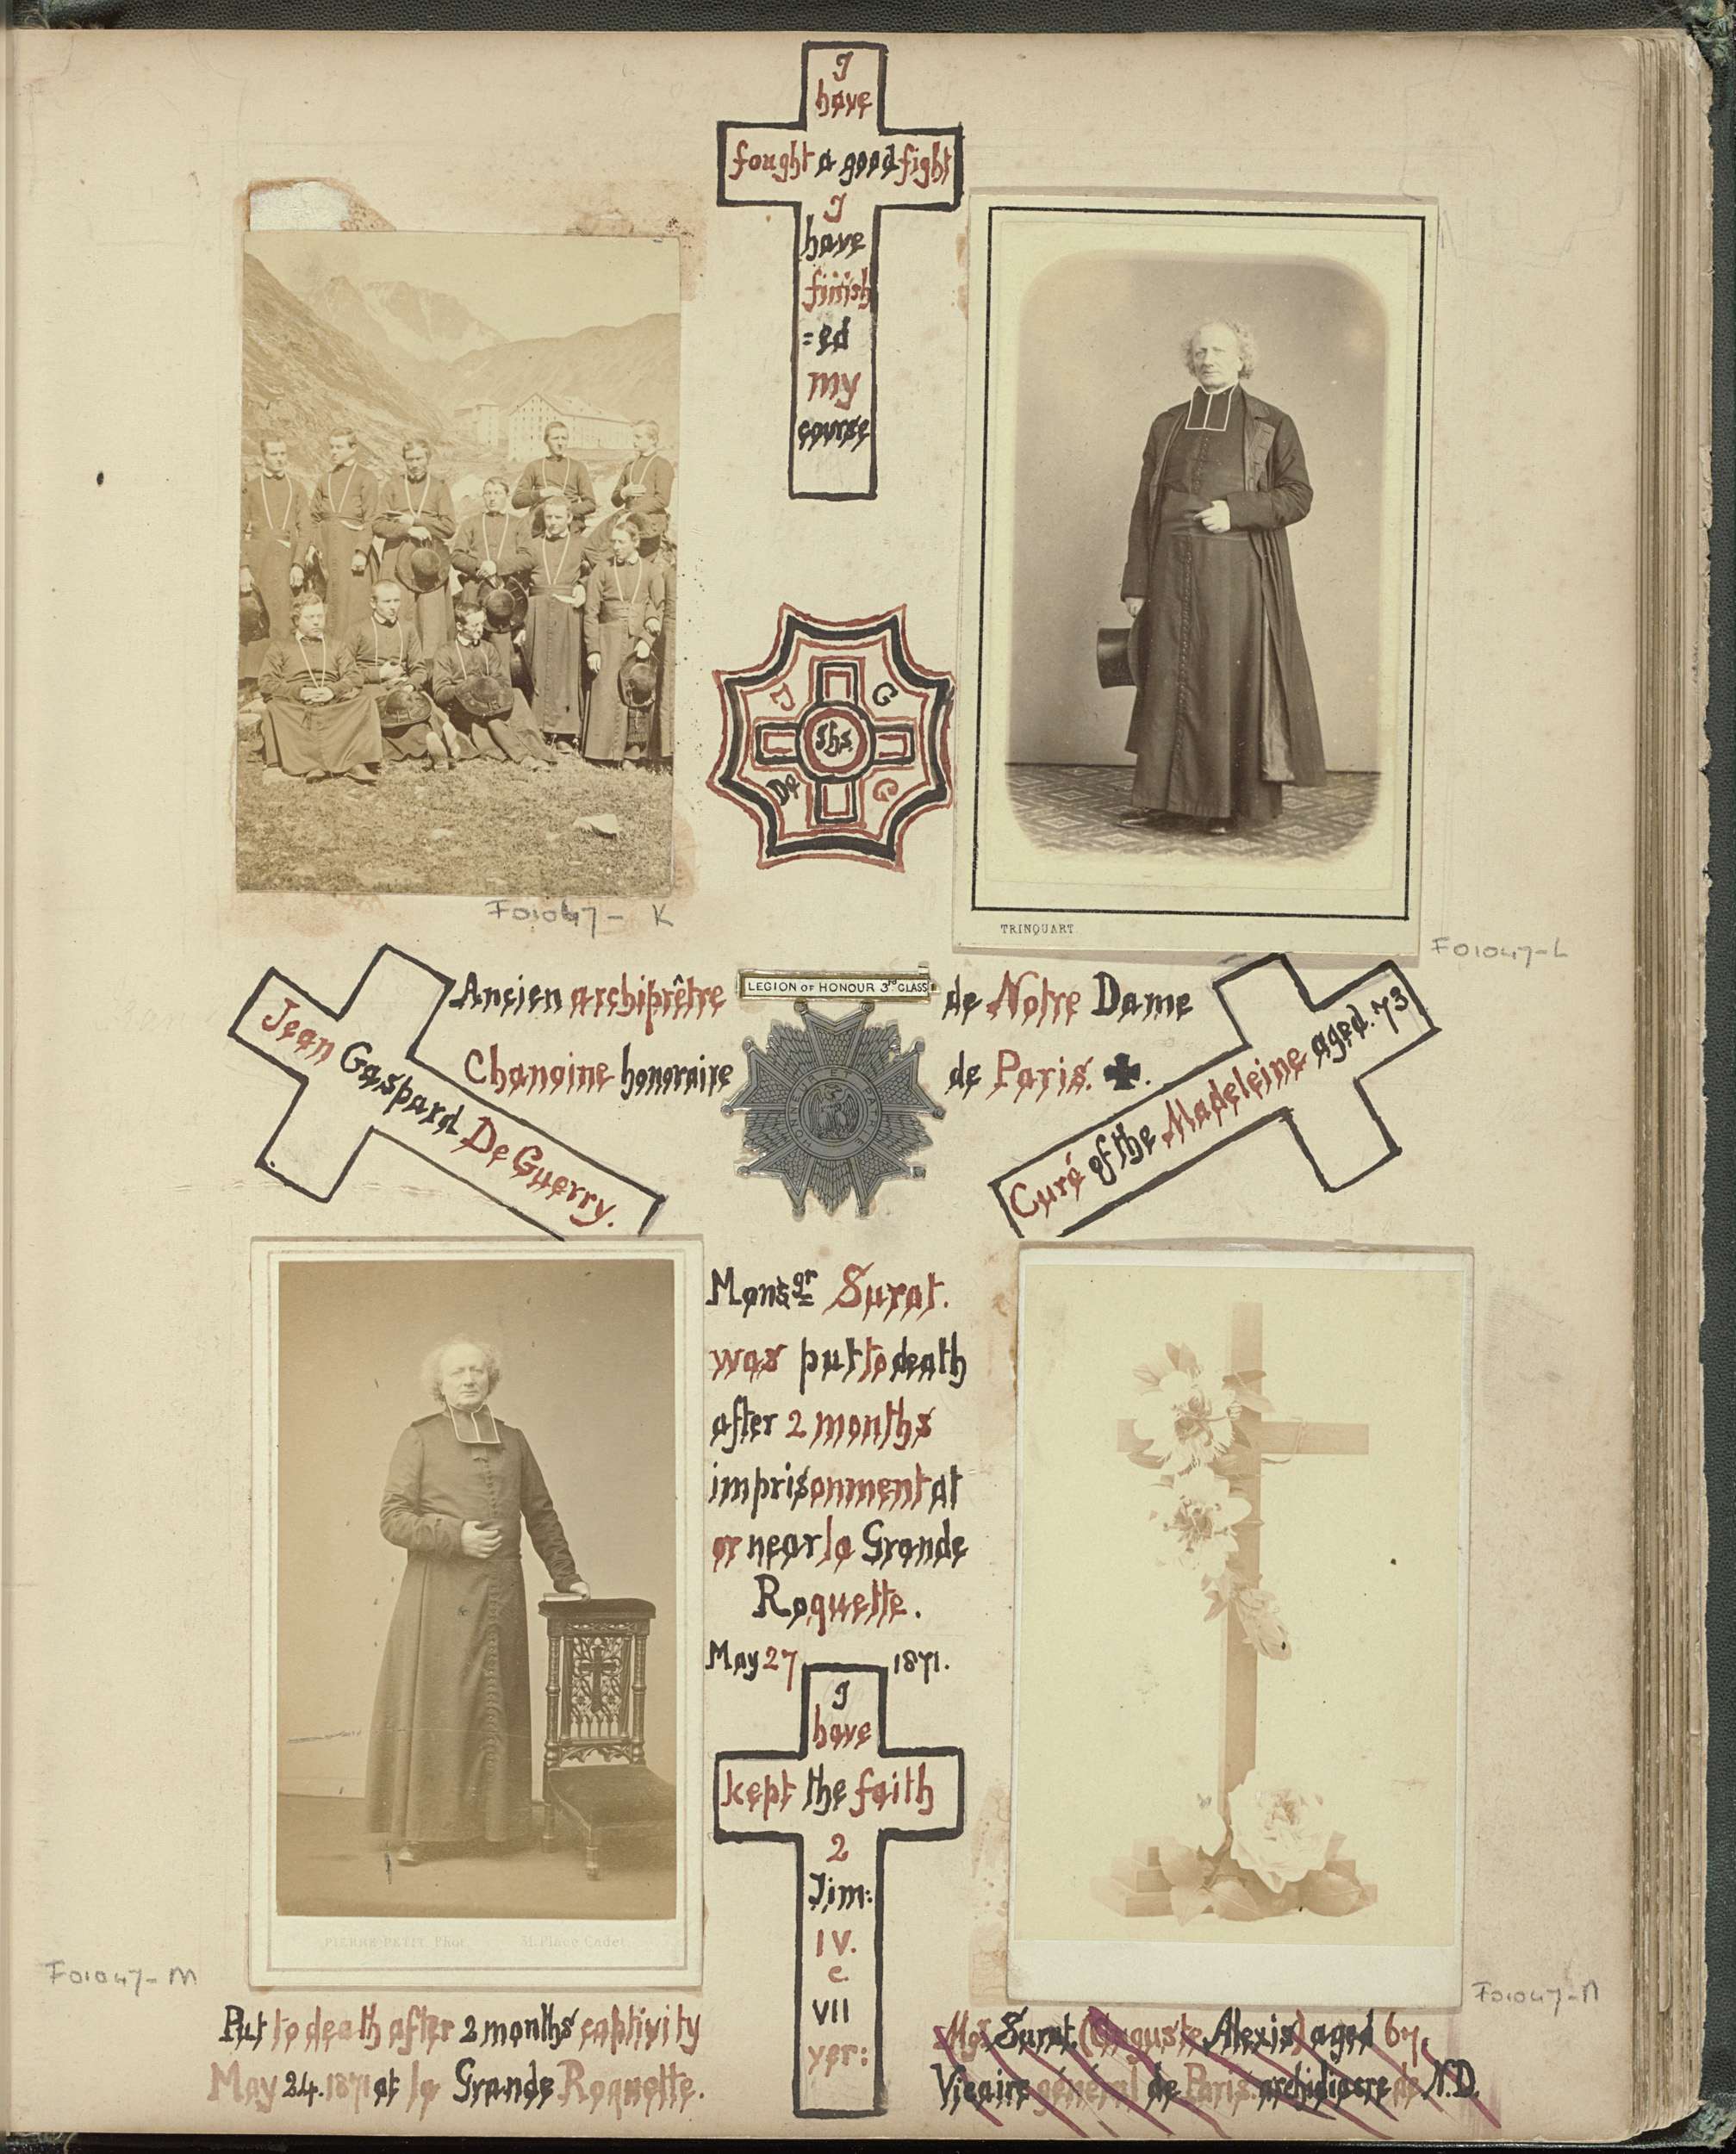 I
have
fought a good fight
I
have
finish
=ed
my
course
J G
Ihs
De G
TRINQUART
F01047- K
F01047-L
Ancien archiprêtre
LEGION OF HONOUR 3rd CLASS
de Notre Dame
Chanoine honoraire
de Paris.
Jean Gaspard De Guerry.
Curé of the Madeleine aged. 73
Monsgr Surat.
was put to death
after 2 months
imprisonment at
or near la Grande
Roquette.
May 27 1871.
I
have
kept the faith
2
Tim:
IV.
c.
VII
yer:
PIERRE PETIT. Phot. 31. Place Cadet.
F01047-M
F01047-N
Put to death after 2 months captivity
May 24. 1871 at la Grande Roquette.
Mgr Surat. (Auguste Alexis) aged 67,
Vicaire général de Paris archidiacre de N.D.